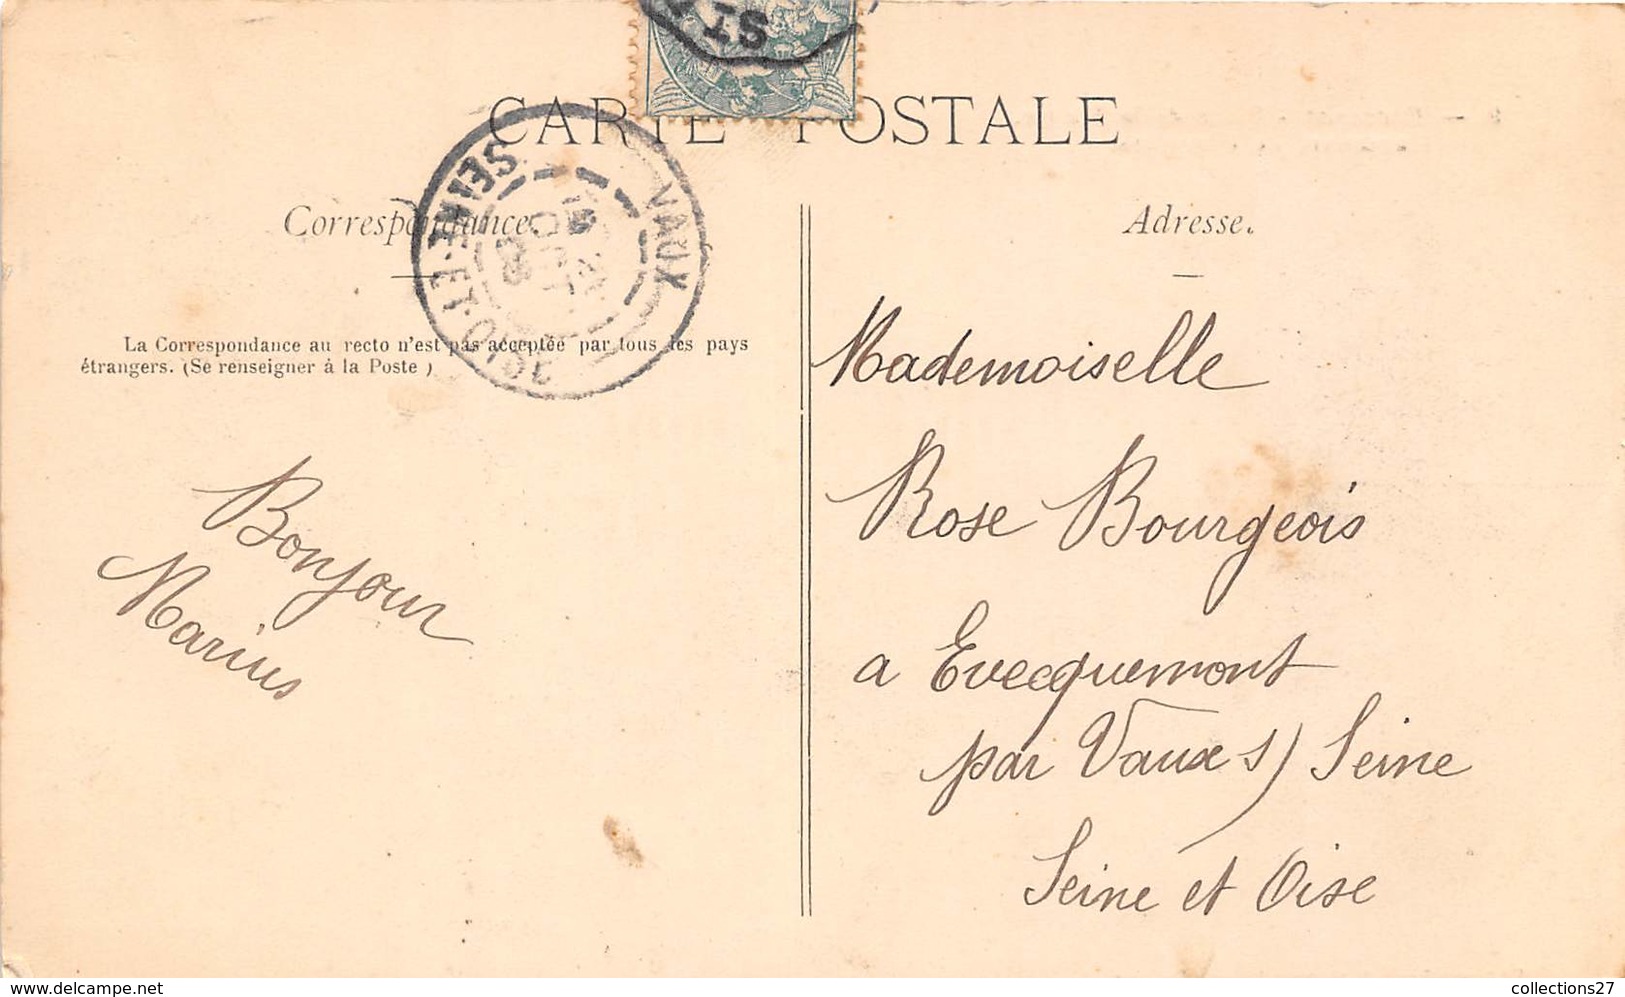 CARTE POSTALE
ST
VAUX
SEINE-ET-OISE
Correspondance
Adresse.
La Correspondance au recto n'est pas acceptée par tous les pays
étrangers. (Se renseigner à la Poste )
Bonjour
Marius
Mademoiselle
Rose Bourgeois
a Evecquemont
par Vaux s/ Seine
Seine et Oise
delcampe.net
collections27